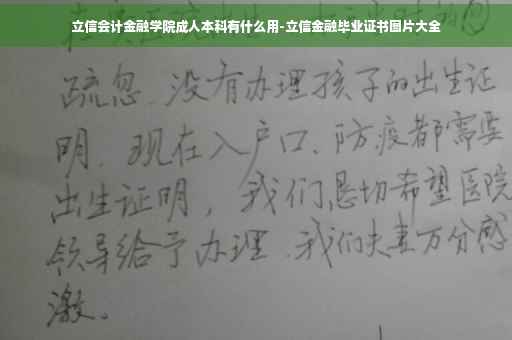 立信会计金融学院成人本科有什么用-立信金融毕业证书图片大全
疏忽、没有办理孩子的出生证
明、现在入户口、防疫都需要
出生证明，我们恳切希望医院
领导给予办理、我们夫妻万分感
激。